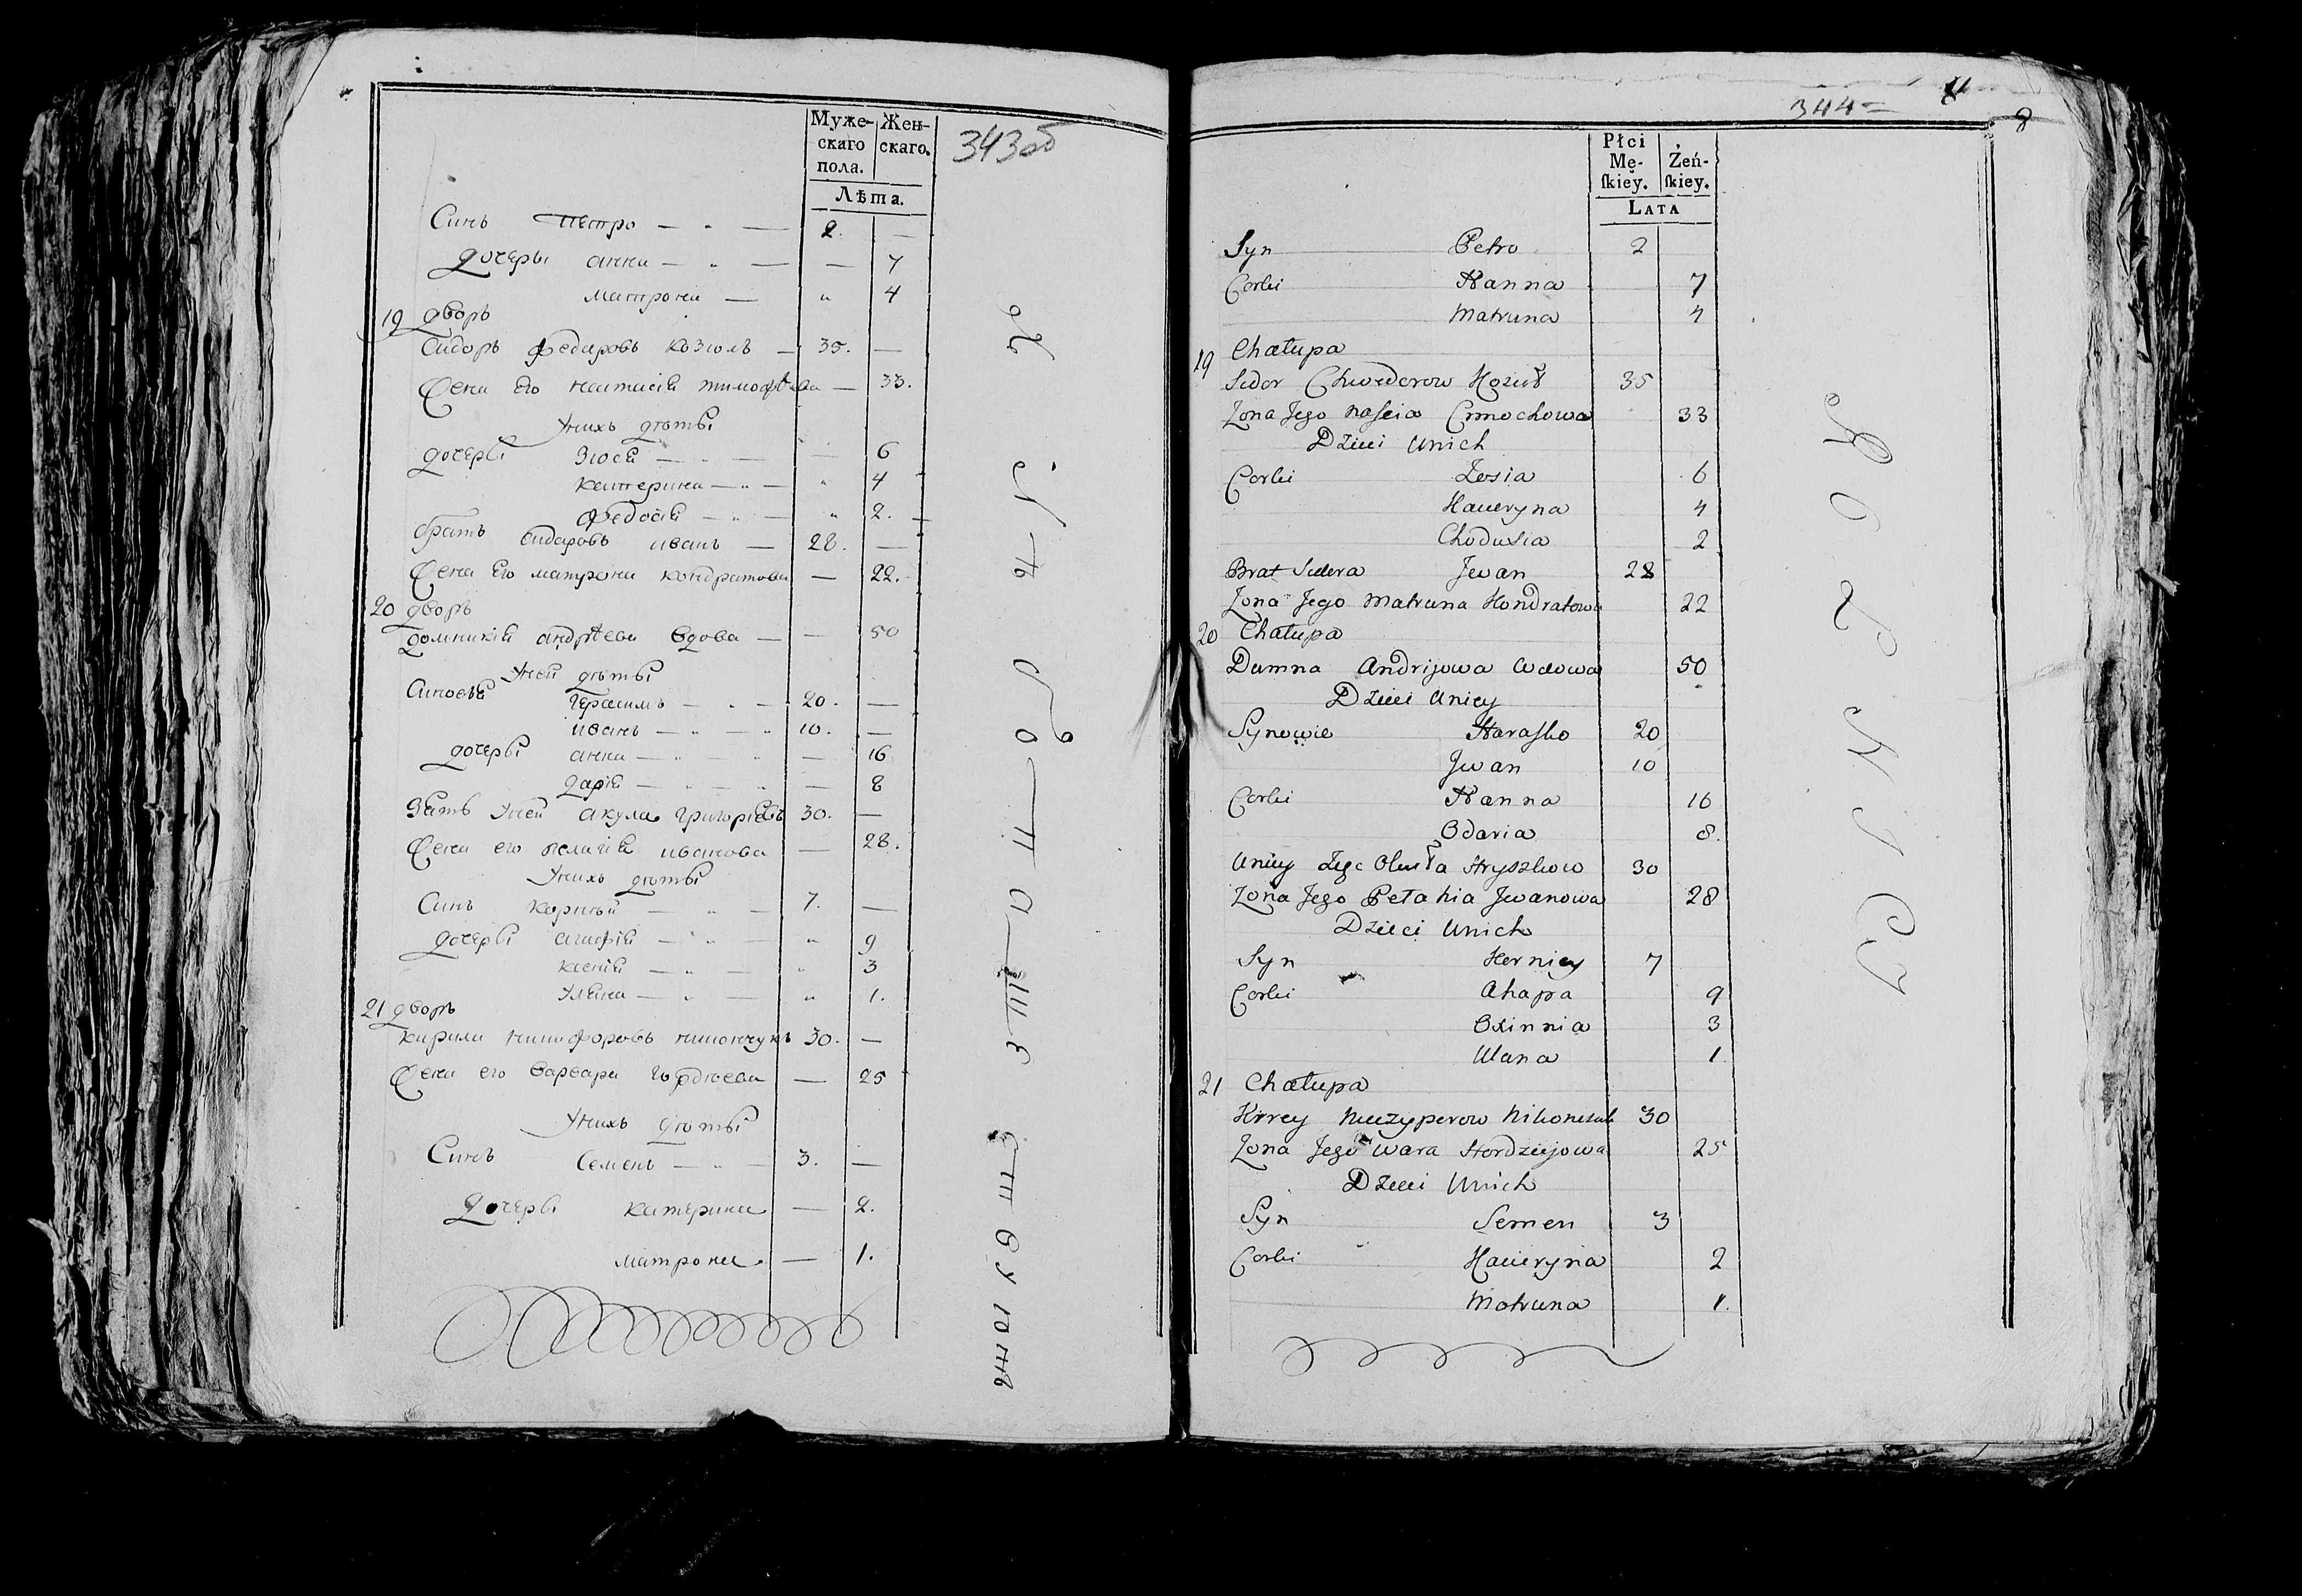 Муже-
скаго
пола.
Жен-
скаго.
Лѣта.
343об
Синъ Петро 2.
дочеры анна 7
матрона 4
19 дворъ
Сидоръ федоровъ козюлъ 35.
Жена его настасія тимофѣева 33.
Унихъ дѣты
дочеры Зюся 6
катерина 4
федосія 2.
братъ сидоровъ иванъ 28.
Жена Его матрона кондратова 22.
20 дворъ
домникія андрѣева вдова 50
Уней дѣты
Синовя герасимъ 20.
иванъ 10.
дочеры анна 16
дарія 8
Зять Уней акула григоріевъ 30.
Жена его пелагія иванова 28.
Унихъ дѣты
Синъ корній 7.
дочеры агафія 9
ксенія 3
Уляна 1.
21 дворъ
кирила никифоровъ 30.
Жена его варвара гордѣева 25
Унихъ дѣты
Синъ Семенъ 3.
Дочеры катерина 2.
матрона 1.
344=
8
Płci
Mę-
skiey.
Żeń-
skiey.
Lata
Syn Petro 2
Corki Hanna 7
Matruna 4
19 Chałupa
Sidor Chwedorow Koziuł 35
Zona Jego Nascia Cimochowa 33
Dzieci Unich
Corki Zosia 6
Kateryna 4
Chodosia 2
Brat Sidora Jwan 28
Zona Jego Matruna Kondratowa 22
20 Chałupa
Dumna Andrijowa Wdowa 50
Dzieci Uniey
Synowie Harasko 20
Jwan 10
Corki Hanna 16
Odaria 8.
Uniey Zięc Okuła Hryszkow 30
Zona Jego Pełahia Jwanowa 28
Dzieci Unich
Syn Korniey 7
Corki Ahapa 9
Oxinnia 3
Ulana 1.
21 Chałupa
Kirey Niczyperow 30
Zona Jego Wara Hordziejowa 25
Dzieci Unich
Syn Semen 3
Corki Kateryna 2
Matruna 1.